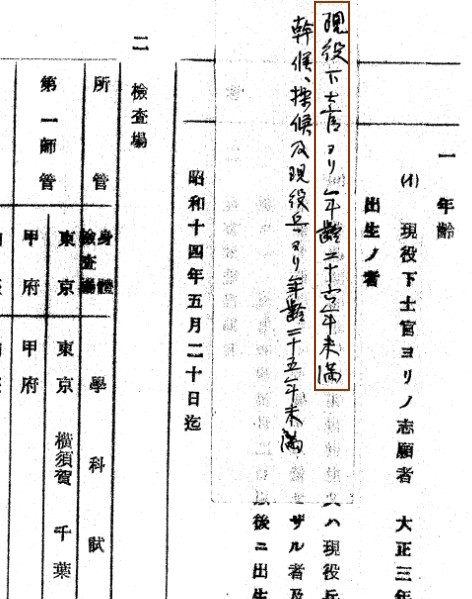 一 年齡
(イ) 現役下士官ヨリノ志願者 大正三年
出生ノ者
現役下士官ヨリ年齡二十六年未満
ハ現役兵
幹候、操候及現役兵ヨリ年齡二十五年未満
ザル者及
後ニ出生
昭和十四年五月二十日迄
二 檢査場
所管 身體檢査場 學科試
第一師管 東京 東京 橫須賀 千葉
甲府 甲府